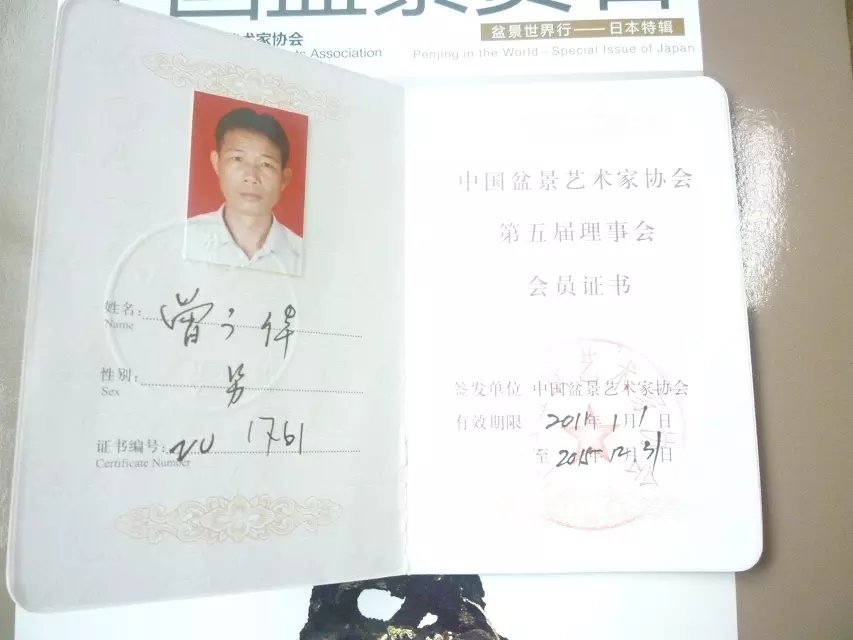 盆景世界行——日本特辑
术家协会
s Association
Penjing in the World – Special Issue of Japan
姓名：
Name
性别：男
Sex
证书编号：NU 1761
Certificate Number
中国盆景艺术家协会
第五届理事会
会员证书
签发单位 中国盆景艺术家协会
有效期限 2011年1月1日
至 2015年12月31日